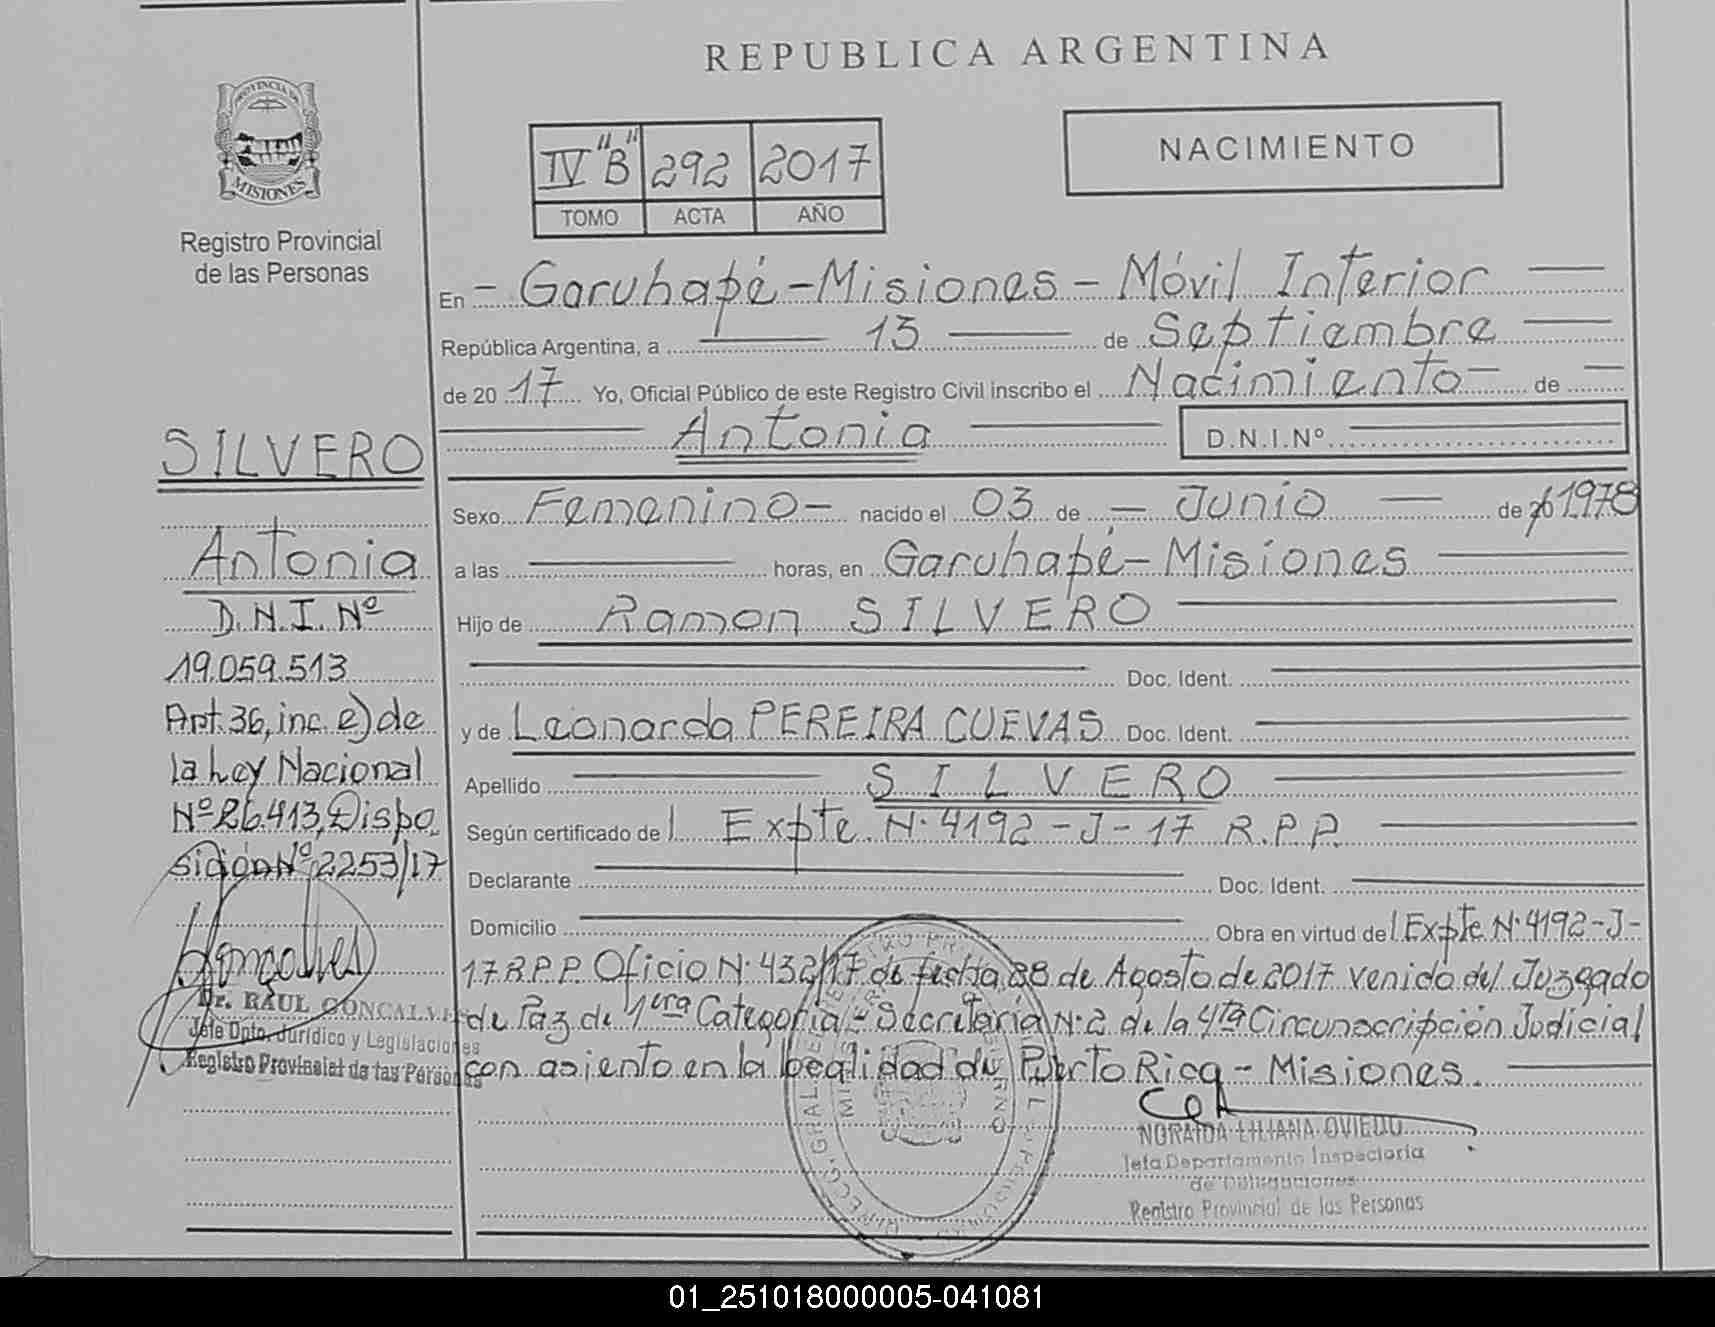 REPUBLICA ARGENTINA
PROVINCIA DE
MISIONES
Registro Provincial
de las Personas
IV "B" 292 2017
TOMO ACTA AÑO
NACIMIENTO
En - Garuhapé - Misiones - Móvil Interior
República Argentina, a 13 de Septiembre
de 20 17 Yo, Oficial Público de este Registro Civil inscribo el Nacimiento - de
Antonia D.N.I.Nº
Sexo Femenino - nacido el 03 de - Junio - de 1978
a las horas, en Garuhapé - Misiones
Hijo de Ramon SILVERO
Doc. Ident.
y de Leonarda PEREIRA CUEVAS Doc. Ident.
Apellido SILVERO
Según certificado de l Expte N·4192-J-17 R.P.P.
Declarante Doc. Ident.
Domicilio Obra en virtud del Expte N·4192-J-
17 R.P.P. Oficio N·432/17 de fecha de Agosto de 2017 venido del Juzgado
de Paz de 1era Categoría - Secretaría N·2 de la 4ta Circunscripción Judicial
con asiento en la localidad de Puerto Rico - Misiones.
NORAIDA LILIANA OVIEDO
Jefa Departamento Inspectoria
de Delegaciones
Registro Provincial de las Personas
SILVERO
Antonia
D.N.I. Nº
19.059.513
Art. 36, inc. e) de
la Ley Nacional
Nº 26.413, Dispo
sición Nº 2253/17
Gonçalves
Dr. RAUL GONCALVES
Jefe Dpto. Jurídico y Legislaciones
Registro Provincial de las Personas
01_251018000005-041081